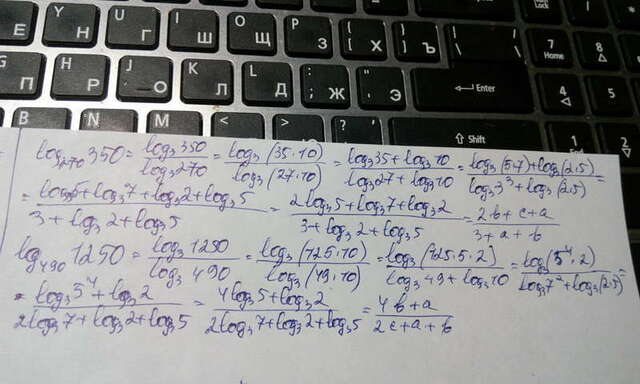 Y U I O P { } | 7 8
Г Ш Щ З Х Ъ \ Home
G H J K L : " Enter 4 5
П Р О Л Д ; Ж ' Э
B N M < > ? Shift 1 2
log₂₇₀350 = log₃350/log₃270 = log₃(35·10)/log₃(27·10) = log₃35+log₃10/log₃27+log₃10 = log₃(5·7)+log₃(2·5)/log₃3³+log₃(2·5) =
= log₃5+log₃7+log₃2+log₃5/3+log₃2+log₃5 = 2log₃5+log₃7+log₃2/3+log₃2+log₃5 = 2b+c+a/3+a+b
log₄₉₀1250 = log₃1250/log₃490 = log₃(125·10)/log₃(49·10) = log₃(125·5·2)/log₃49+log₃10 = log₃(5⁴·2)/log₃7²+log₃(2·5) =
= log₃5⁴+log₃2/2log₃7+log₃2+log₃5 = 4log₃5+log₃2/2log₃7+log₃2+log₃5 = 4b+a/2c+a+b